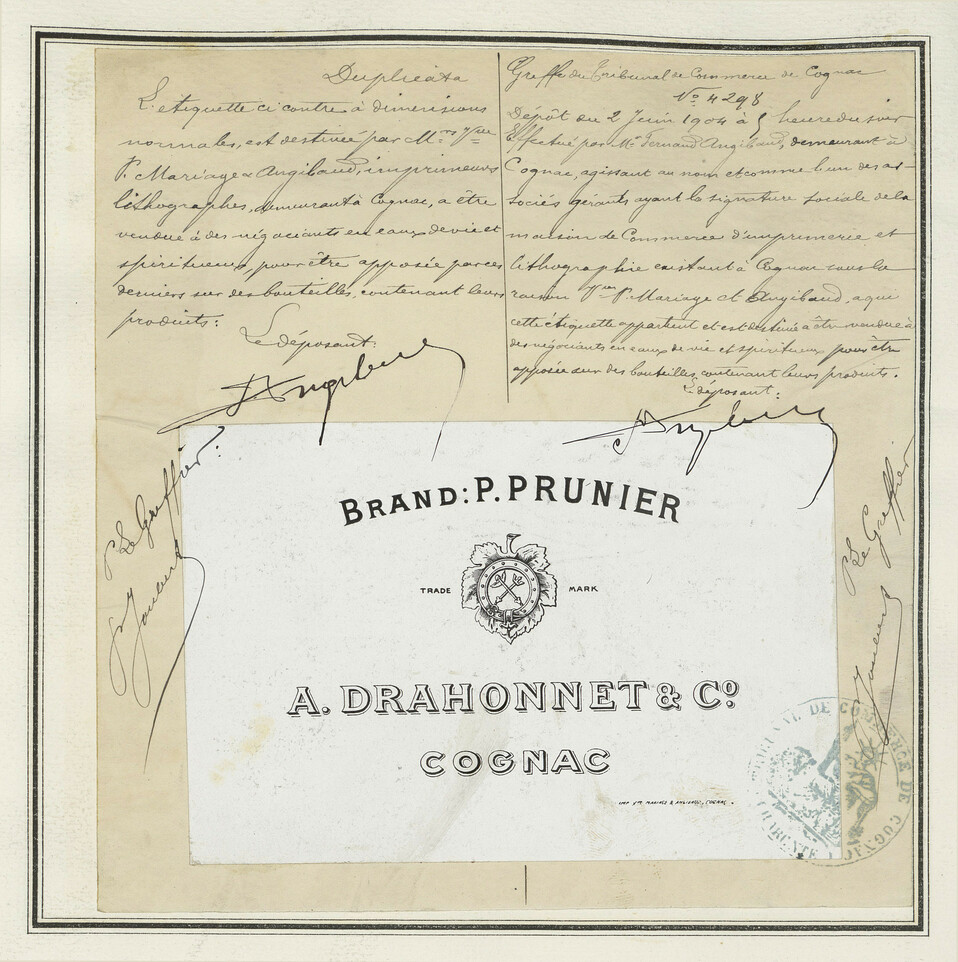 Duplicata
L'étiquette ci contre à dimensions
normales, est destinée par Mrs Vve
P. Mariage & Angibaud, imprimeurs
lithographes, demeurant à Cognac, a être
vendue à des négociants en eaux de vie et
spiritueux, pour être apposée par ces
derniers sur des bouteilles, contenant leurs
produits:
Le déposant:
Greffe du Tribunal de Commerce de Cognac
No 4298
Dépôt du 2 Juin 1904 à 5 heure du soir
Effectué par Mr Fernand Angibaud, demeurant à
Cognac, agissant au nom et comme l'un des as-
sociés gérants ayant la signature sociale de la
maison de Commerce d'imprimerie et
lithographie existant à Cognac sous la
raison Vve P. Mariage et Angibaud, a qui
cette étiquette appartient et est destinée a être vendue à
des négociants en eaux de vie et spiritueux pour être
apposée sur des bouteilles contenant leurs produits.
Le déposant:
P Le Greffier:
P Le Greffier
BRAND: P. PRUNIER
TRADE MARK
A. DRAHONNET & Co.
COGNAC
IMP. Vve MARIAGE & ANGIBAUD, COGNAC.
TRIBUNAL DE COMMERCE DE COGNAC
CHARENTE